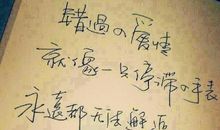 錯過の爱情
就像一只停滞の手表
永遠都无法解